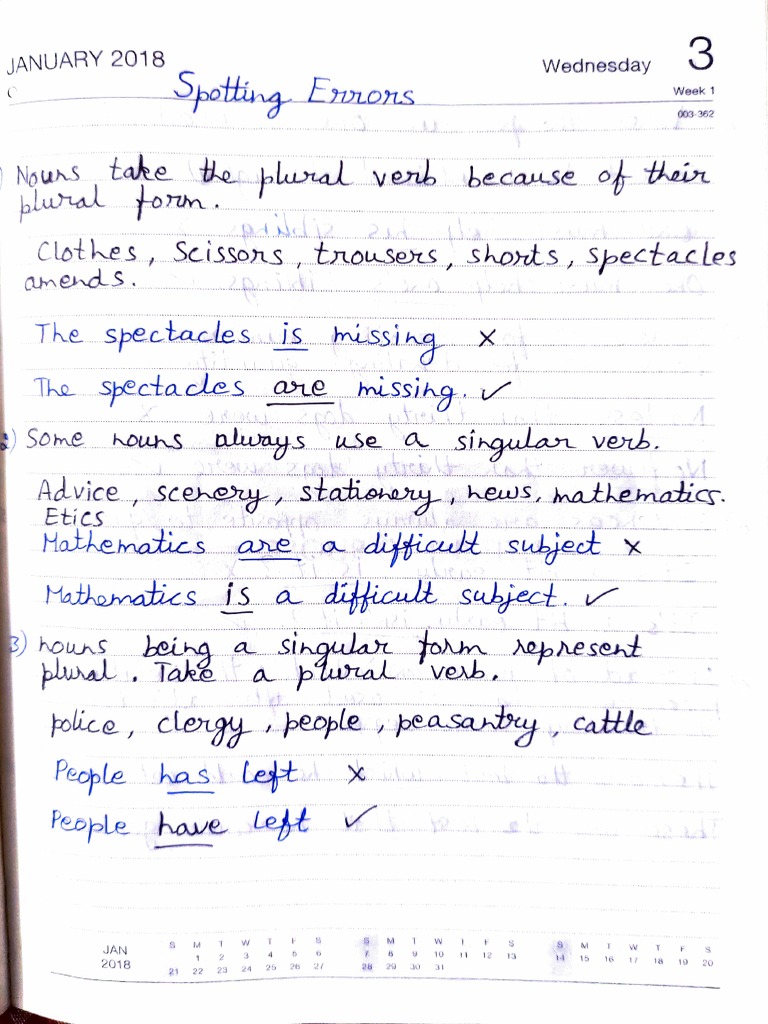 JANUARY 2018
Wednesday 3
Week 1
003-362
Spotting Errors
Nouns take the plural verb because of their
plural form.
Clothes, Scissors, trousers, shorts, spectacles
amends.
The spectacles is missing ×
The spectacles are missing. ✓
2) Some nouns always use a singular verb.
Advice, scenery, stationery, news, mathematics.
Etics
Mathematics are a difficult subject ×
Mathematics is a difficult subject. ✓
3) nouns being a singular form represent
plural. Take a plural verb.
police, clergy, people, peasantry, cattle
People has left ×
People have left ✓
JAN
2018
S M T W T F S
1 2 3 4 5 6
21 22 23 24 25 26 27
S M T W T F S
7 8 9 10 11 12 13
28 29 30 31
S M T W T F S
14 15 16 17 18 19 20